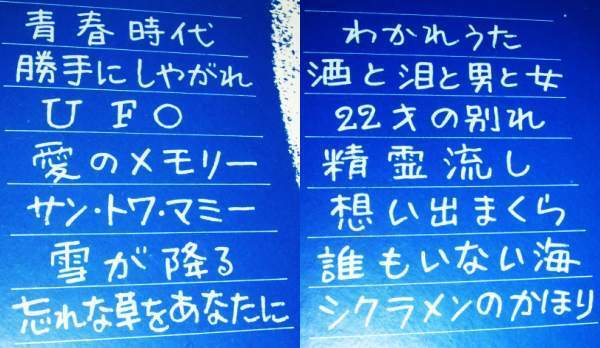 青春時代
勝手にしやがれ
UFO
愛のメモリー
サン・トワ・マミー
雪が降る
忘れな草をあなたに
わかれうた
酒と泪と男と女
22才の別れ
精霊流し
想い出まくら
誰もいない海
シクラメンのかほり